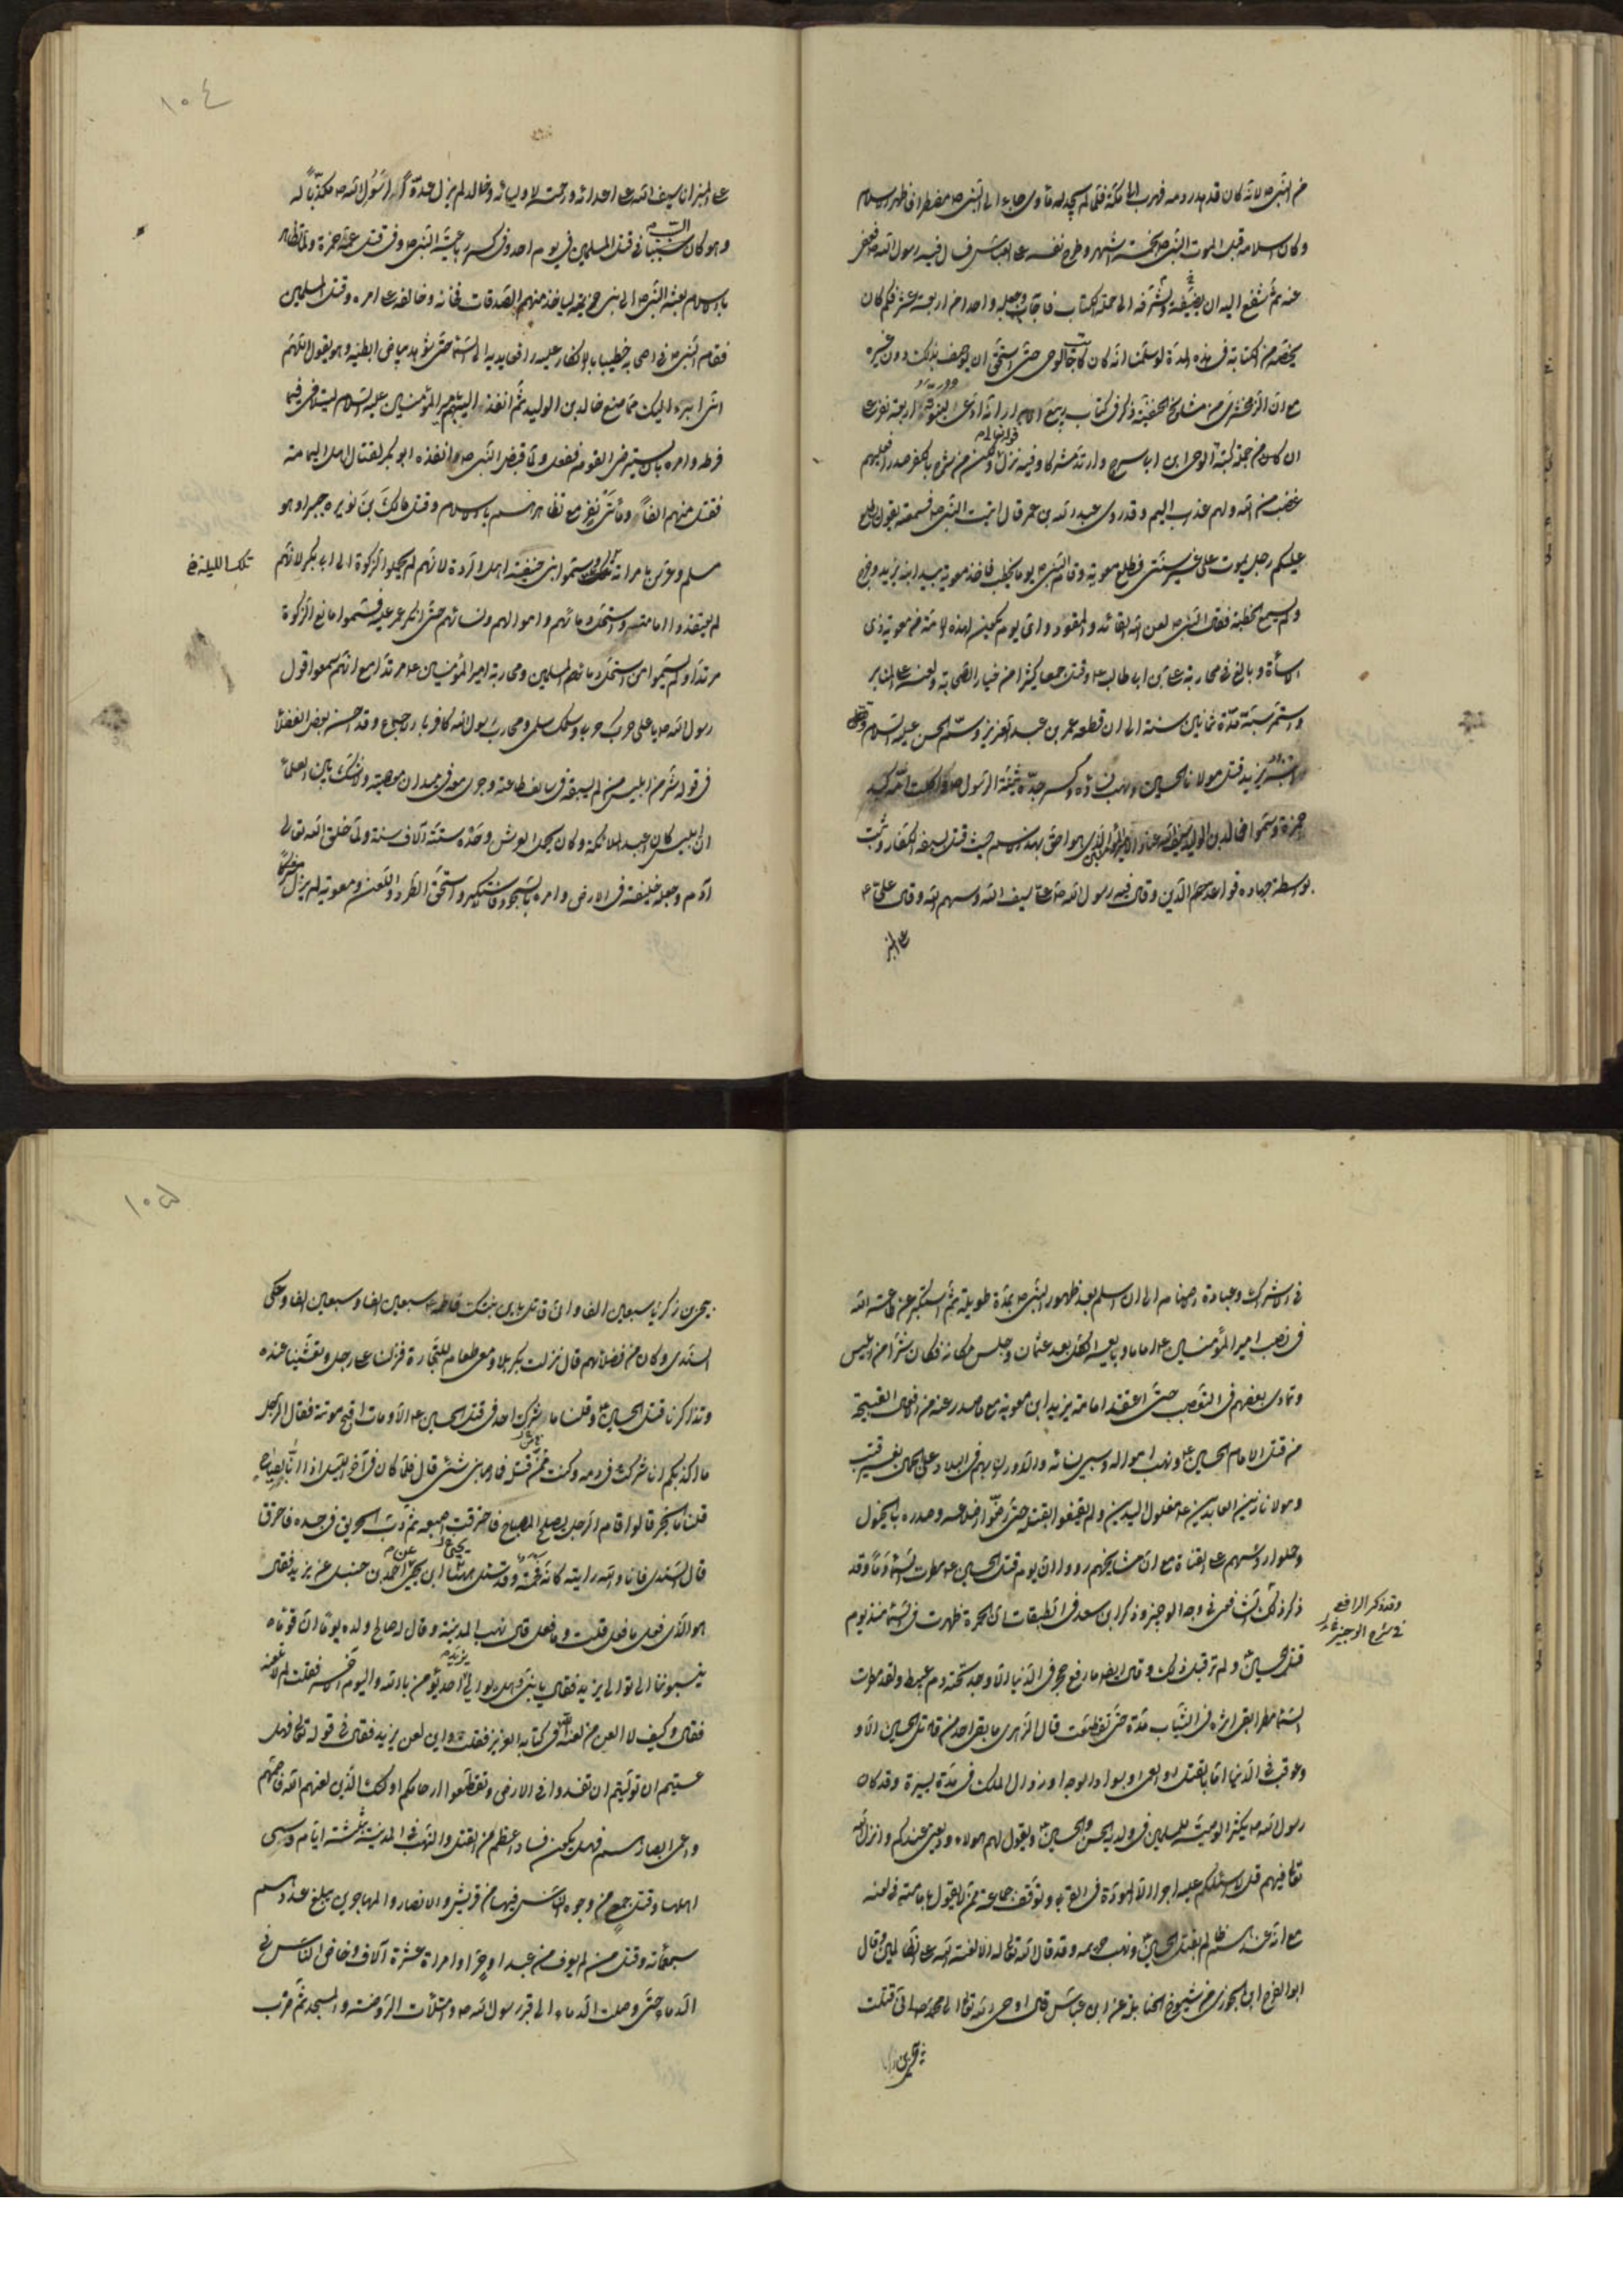 من النبي ص لانه كان قد هدر دمه فهرب الى مكة فلما لم يجد له مأوى جاء الى النبي ص مضطرا فاظهر الاسلام
وكان اسلامه قبل الموت النبي ص بخمسة اشهر وطرح نفسه على العباس فسال فيه رسول الله ص فعفى
عنه ثم شفع اليه ان يضيفه ويشرفه الى جملة الكتاب فاجاب وجعله واحدا من اربعة عشر فكم كان
يخصه من الكتابة في هذه المدة لو سلمنا انه كان كاتب الوحى حتى استحق ان يوصف بذلك دون غيره
مع ان الزمخشرى من مشايخ الحنفية ذكر في كتاب ربيع الابرار انه ادعى لبنوته اربعة نفر على
ان كان من جملة كتبة الوحى ابن ابى سرح وارتد مشركا وفيه نزل ولكن من شرح بالكفر صدرا فعليهم
غضب من الله ولهم عذاب اليم وقد روى عبد الله بن عمر قال اتيت النبي ص فسمعته يقول يطلع
عليكم رجل يموت على غير سنتى فطلع معوية وقام النبي ص يوما يخطب فاخذ معوية بيد ابنه يزيد وخرج
ولم يسمع الخطبة فقال النبي ص لعن الله القائد والمقود واى يوم يكون لهذه الامة من معوية ذى
الاسائة وبالغ في محاربة على بن ابى طالب ع وقتل جمعا كثيرا من خيار الصحابة ولعنه على المنابر
واستمر سبه مدة ثمانين سنة الى ان قطعه عمر بن عبد العزيز وسم الحسن عليه السلام وقتل
ابنه يزيد قتل مولانا الحسين ونهب نساؤه وكسر جده ثنية الرسول ص واكلت امه كبد
حمزة وسموا خالد بن الوليد سيف الله عنادا لامير المؤمنين الذي هو احق بهذا الاسم حيث قتل بسيفه الكفار وثبت
بواسطة جهاده قواعد الدين وقال فيه رسول الله ص على سيف الله وسهم الله وقال على ع
على المنبر
١٠٤
على المنبر انا سيف الله على اعدائه ورحمته لاوليائه وخالد لم يزل عدوا لرسول الله ص مكذبا له
وهو كان السبب في قتل المسلمين في يوم احد وفى كسر رباعية النبي ص وفى قتل عمه حمزة ولما تظاهر
بالاسلام بعثه النبي ص الى بنى جذيمة لياخذ منهم الصدقات فخانه وخالفه على امره وقتل المسلمين
فقام النبي ص في اصحابه خطيبا بالانكار عليه رافعا يديه الى السماء حتى شوهد بياض ابطيه وهو يقول اللهم
انى ابرء اليك مما صنع خالد بن الوليد ثم انفذ اليهم امير المؤمنين عليه السلام ليتلافى فيما
فرطه وامره بان يسترضى القوم ففعل ولما قبض النبي ص وانفذه ابو بكر لقتال اهل اليمامة
فقتل منهم الفا ومأتى نفر مع تظاهرهم بالاسلام وقتل مالك بن نويره جبرا وهو
مسلم وعرس بامراته وسموا بنى حنيفة اهل الردة لانهم لم يحملوا الزكوة الى ابى بكر لانهم
تلك الليلة خ
لم يعتقدوا امامته واستحل دمائهم واموالهم ونسائهم حتى انكر عمر عليه فسموا مانع الزكوة
مرتدا ولم يسموا من استحل دماء المسلمين ومحاربة امير المؤمنين ع مرتدا مع انهم سمعوا قول
رسول الله ص يا على حربك حربى وسلمك سلمى ومحارب رسول الله كافر بالاجماع وقد احسن بعض الفضلاء
في قوله شر من ابليس من لم يسبقه في سالف طاعته وجرى معه في ميدان معصيته ولا شك بين العلماء
ان ابليس كان اعبد الملائكة وكان يحمل العرش وحده ستة آلاف سنة ولما خلق الله تعالى
آدم وجعله خليفة في الارض وامره بالسجود فاستكبر واستحق الطرد واللعن ومعوية لم يزل مشركا
في الاشراك وعبادة الاصنام الى ان اسلم بعد ظهور النبي ص بمدة طويلة ثم استكبر عن طاعة الله
في نصب امير المؤمنين ع اماما وبايعه الكل بعد عثمان وجلس مكانه فكان شرا من ابليس
وتمادى بعضهم في التعصب حتى اعتقد امامة يزيد ابن معوية مع ما صدر عنه من الافعال القبيحة
من قتل الامام الحسين ع ونهب امواله وسبى نسائه والدوران بهم في البلاد على الجمال بغير قتب
ومولانا زين العابدين ع مغلول اليدين ولم يقنعوا بقتله حتى رضوا اضلاعه وصدره بالخيول
وحملوا رؤسهم على القناة مع ان مشايخهم رووا ان يوم قتل الحسين ع مطرت السماء دما وقد
ذكر ذلك الشافعى في وجه الوجيز وذكر ابن سعد في الطبقات ان الحمرة ظهرت في السماء منذ يوم
وقد ذكر الرافعى
في شرح الوجيز خ
قتل الحسين ع ولم تر قبل ذلك وقال ايضا ما رفع حجر في الدنيا الا وجد تحته دم عبيط ولقد مطرت
السماء مطرا بقى اثره في الثياب مدة حتى تقطعت قال الزهرى ما بقى احد من قاتلى الحسين الا و
وعوقب في الدنيا اما بالقتل او العمى او سواد الوجه او زوال الملك في مدة يسيرة وقد كان
رسول الله ص يكثر الوصية للمسلمين في ولديه الحسن والحسين ع ويقول لهم هولاء وديعتى عندكم وانزل الله
تعالى فيهم قل لا اسئلكم عليه اجرا الا المودة في القربى وتوقف جماعة ممن لا يقول بامامته في لعنه
مع انه عندهم ظالم بقتل الحسين ع ونهب حريمه وقد قال الله تعالى الا لعنة الله على الظالمين وقال
ابو الفرج ابن الجوزى من شيوخ الحنابلة عن ابن عباس قال اوحى الله تعالى الى محمد ص انى قتلت
بيحيى بن
١٠٥
بيحيى بن زكريا سبعين الفا وانى قاتل بابن بنتك فاطمة سبعين الفا وسبعين الفا وحكى
السدى وكان من فضلائهم قال نزلت بكربلا ومعى طعام للتجارة فنزلنا على رجل وتعشينا عنده
وتذاكرنا قتل الحسين ع وقلنا ما شرك احد في قتل الحسين ع الا ومات اقبح موتة فقال الرجل
ما اكذبكم انا شركت في دمه وكنت ممن قتله فما اصابنى شئ قال فلما كان في آخر الليل اذا انا بصياح
قلنا ما الخبر قالوا قام الرجل يصلح المصباح فاحترقت اصبعه ثم دب الحريق في جسده فاحترق
قال السدى فانا والله رايته كانه فحمة وقد سئل مهنا ابن يحيى احمد بن حنبل عن يزيد فقال
هو الذى فعل ما فعل قلت وما فعل قال نهب المدينة وقال له صالح ولده يوما ان قوما
ينسبوننا الى توالى يزيد فقال يا بنى وهل يوالى يزيد احد يؤمن بالله واليوم الآخر فقلت لم لا تلعنه
فقال وكيف لا العن من لعنه الله في كتابه العزيز فقلت واين لعن يزيد فقال في قوله تعالى فهل
عسيتم ان توليتم ان تفسدوا في الارض وتقطعوا ارحامكم اولئك الذين لعنهم الله فاصمهم
واعمى ابصارهم فهل يكون فساد اعظم من القتل والنهب في المدينة ثلثة ايام وسبى
اهلها وقتل جمع من وجوه الناس فيها من قريش والانصار والمهاجرين يبلغ عددهم
سبعمأئة وقتل من لم يعرف من عبد او حر او امراة عشرة آلاف وخاض الناس في
الدماء حتى وصلت الدماء الى قبر رسول الله ص وامتلأت الروضة والمسجد ثم ضرب